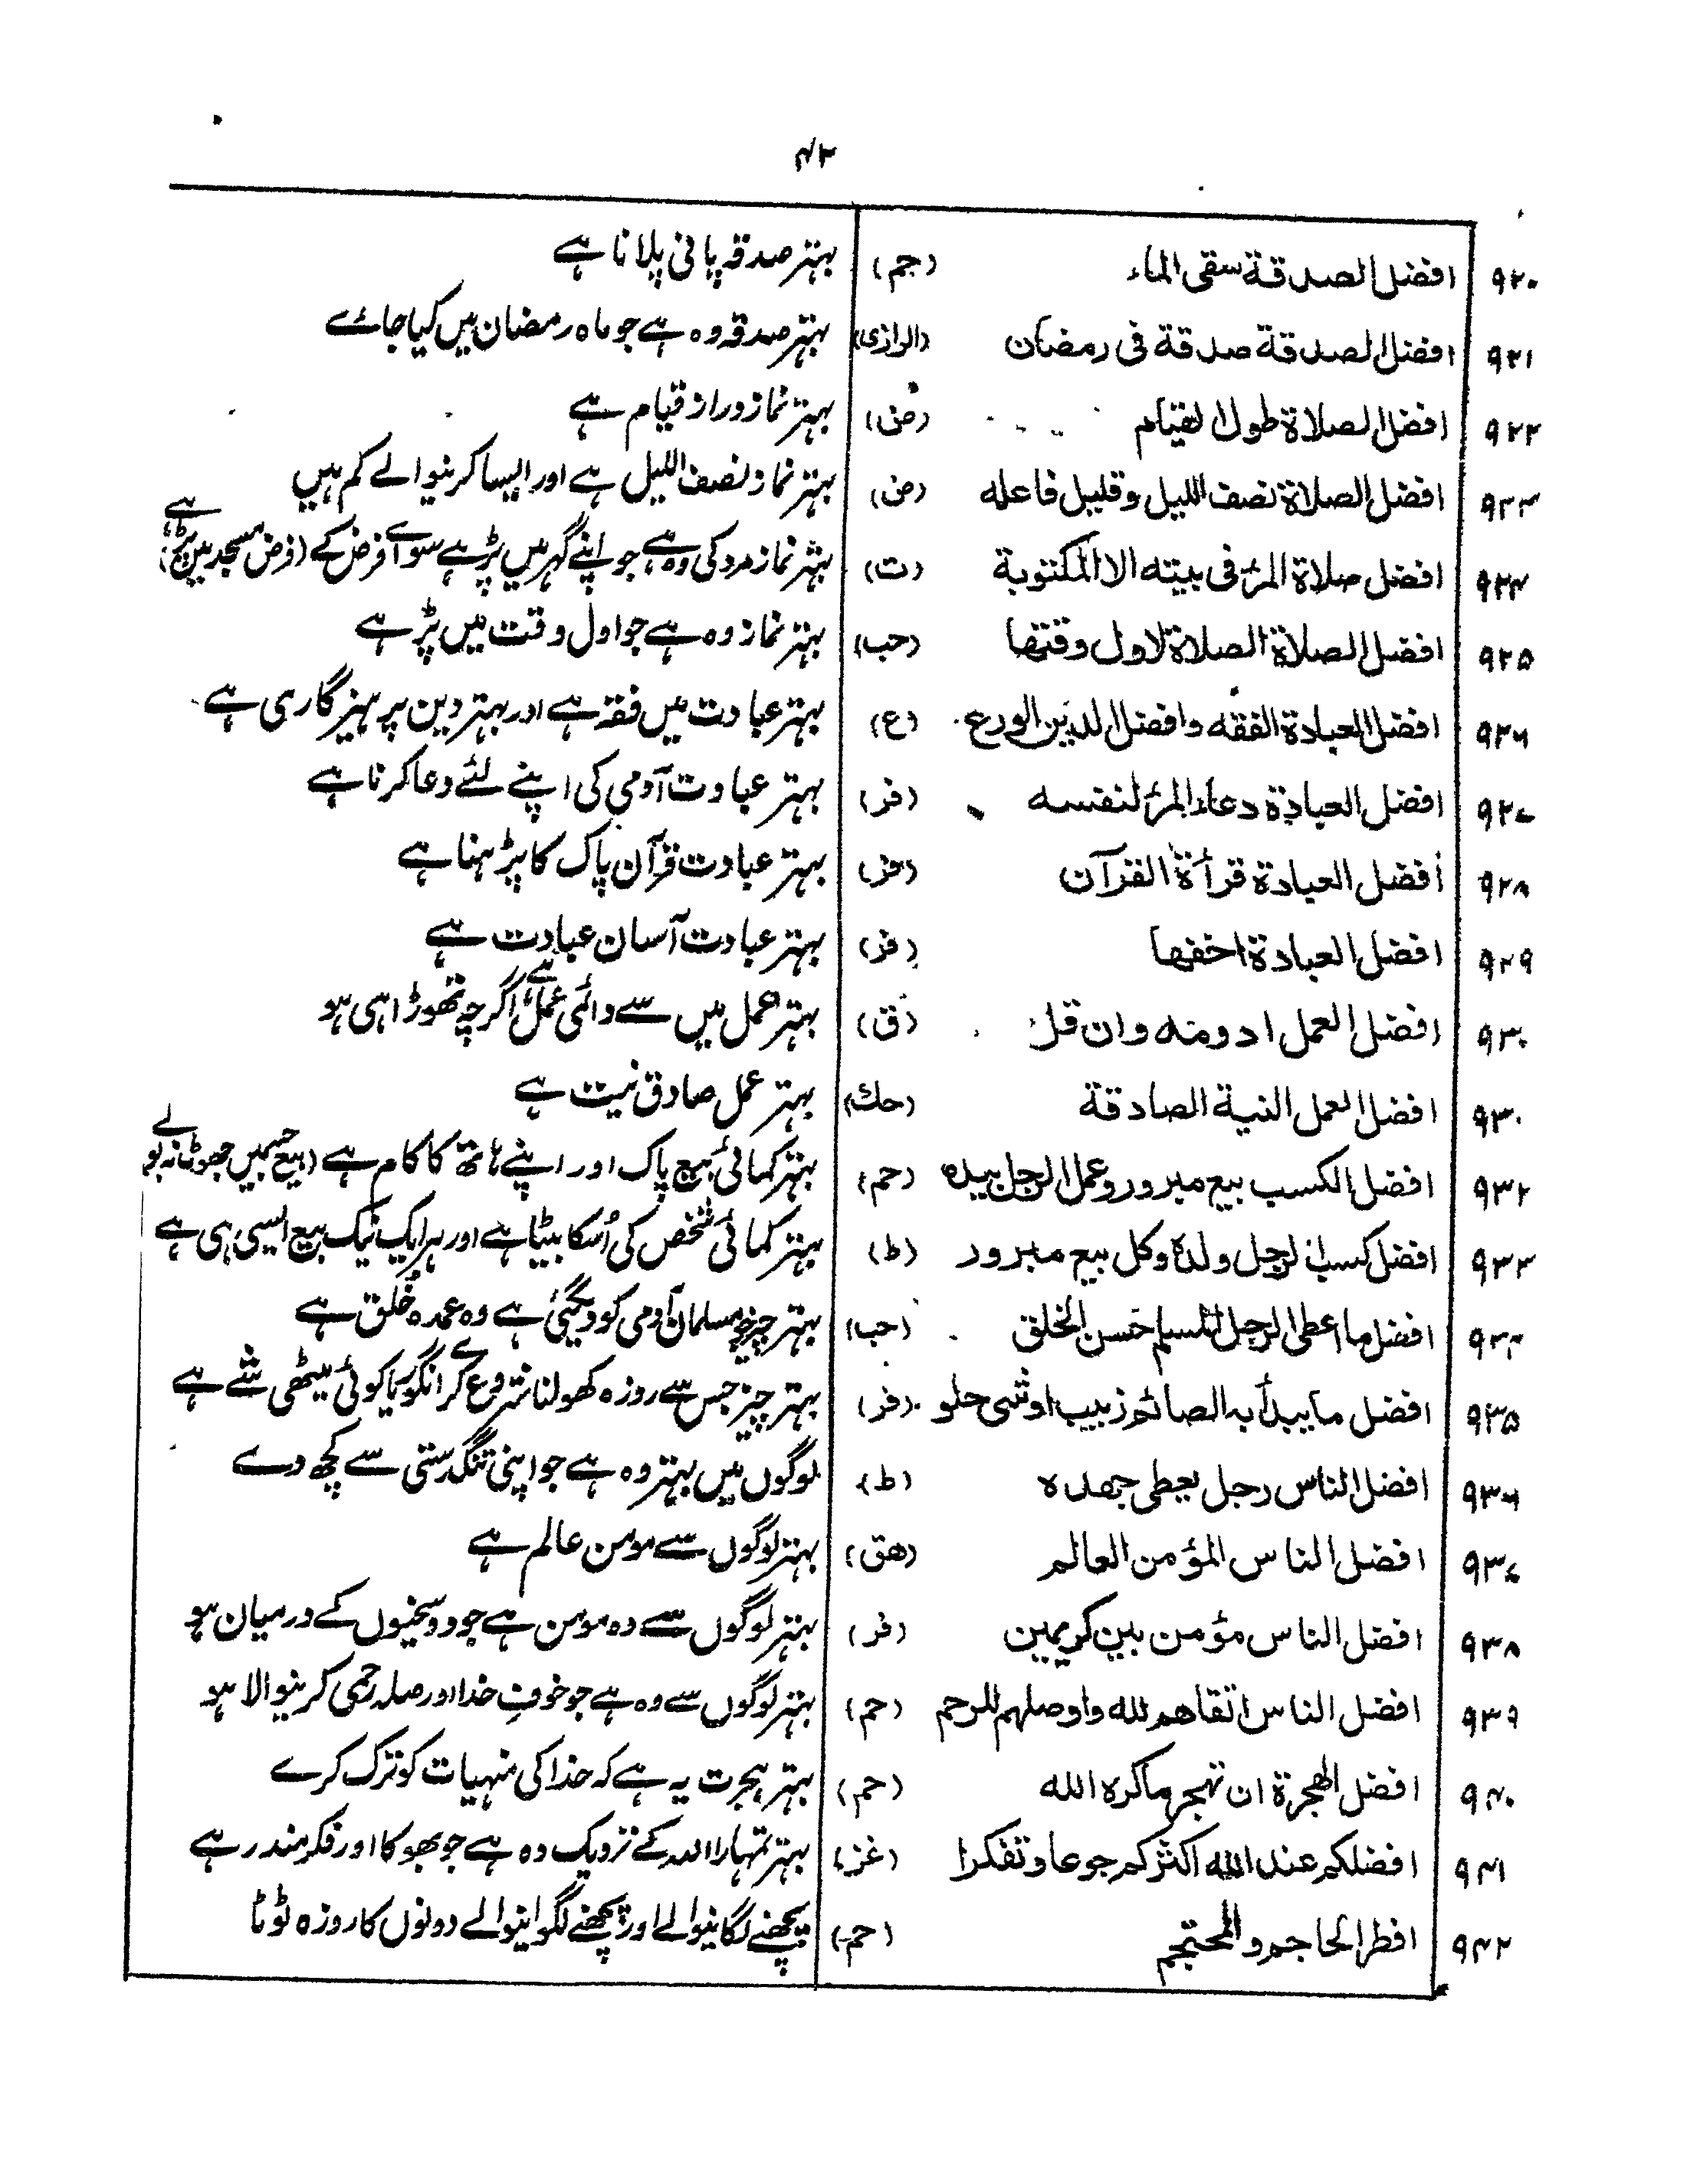 ۴۲
۹۲۰ افضل الصدقة سقی الماء (حم) بہتر صدقہ پانی پلانا ہے
۹۲۱ افضل الصدقة صدقة فی رمضان (الرازی) بہتر صدقہ وہ ہے جو ماہ رمضان میں کیا جائے
۹۲۲ افضل الصلاة طول القیام (ض) بہتر نماز دراز قیام ہے
۹۲۳ افضل الصلاة نصف اللیل وقلیل فاعله (ض) بہتر نماز نصف اللیل ہے اور ایسا کرنیوالے کم ہیں
۹۲۴ افضل صلاة المرٔ فی بیته الا المکتوبة (ت) بہتر نماز مرد کی وہ ہے جو اپنے گہر میں پڑہے سوائے فرض کے (فرض مسجد میں پڑہے)
۹۲۵ افضل الصلاة الصلاة لاول وقتها (حب) بہتر نماز وہ ہے جو اول وقت میں پڑہے
۹۲۶ افضل العبادة الفقه وافضل الدین الورع (ع) بہتر عبادت میں فقہ ہے اور بہتر دین پرہیزگاری ہے
۹۲۷ افضل العبادة دعاء المرٔ لنفسه (فر) بہتر عبادت آدمی کی اپنے لئے دعا کرنا ہے
۹۲۸ أفضل العبادة قرأة القرآن (فر) بہتر عبادت قرآن پاک کا پڑہنا ہے
۹۲۹ افضل العبادة اخفها (فر) بہتر عبادت آسان عبادت ہے
۹۳۰ افضل العمل ادومه وان قل (ق) بہتر عمل میں سے دائمی عمل ہے اگرچہ تھوڑا ہی ہو
۹۳۰ افضل العمل النیة الصادقة (حك) بہتر عمل صادق نیت ہے
۹۳۲ افضل الکسب بیع مبرور وعمل الرجل بیده (حم) بہتر کمائی بیع پاک اور اپنے ہاتھ کا کام ہے (بیع جسمیں جھوٹ نہ بولے
۹۳۳ افضل کسب الرجل ولده وکل بیع مبرور (ط) بہتر کمائی شخص کی اُسکا بیٹا ہے اور ہر ایک نیک بیع ایسی ہی ہے
۹۳۴ افضل ما اعطی الرجل المسلم حسن الخلق (حب) بہتر چیز جو مسلمان آدمی کو دیگئی ہے وہ عمدہ خُلق ہے
۹۳۵ افضل ما یبدأ به الصائم زبیب او شی حلو (فر) بہتر چیز جس سے روزہ کھولنا شروع کرے انگور یا کوئی میٹھی شے ہے
۹۳۶ افضل الناس رجل یعطی جهده (ط) لوگوں میں بہتر وہ ہے جو اپنی تنگدستی سے کچھ دے
۹۳۷ افضل الناس المؤمن العالم (هق) بہتر لوگوں سے مومن عالم ہے
۹۳۸ افضل الناس مؤمن بین کریمین (فر) بہتر لوگوں سے وہ مومن ہے جو دو سخیوں کے درمیان ہو
۹۳۹ افضل الناس اتقاهم لله واوصلهم للرحم (حم) بہتر لوگوں سے وہ ہے جو خوفِ خدا اور صلہ رحمی کرنیوالا ہو
۹۴۰ افضل الهجرة ان تهجر ماکره الله (حم) بہتر ہجرت یہ ہے کہ خدا کی منہیات کو ترک کرے
۹۴۱ افضلکم عند الله اکثرکم جوعا وتفکرا (غز) بہتر تمہارا اللہ کے نزدیک وہ ہے جو بھوکا اور فکرمند رہے
۹۴۲ افطر الحاجم والمحتجم (حم) پچھنے لگانیوالے اور پچھنے لگوانیوالے دونوں کا روزہ ٹوٹا